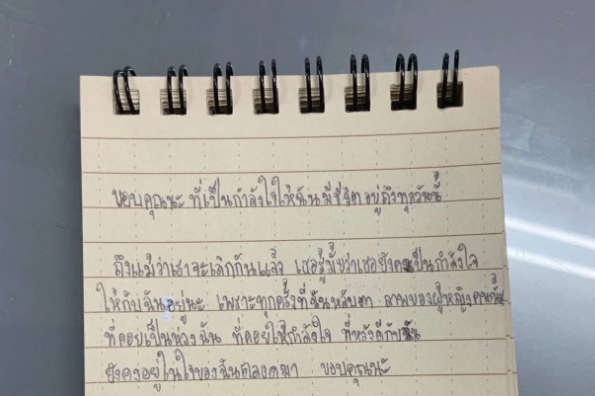 ขอบคุณนะ ที่เป็นกำลังใจให้ฉันมีชีวิตอยู่ถึงทุกวันนี้
ถึงแม้ว่าเราจะเลิกกันแล้ว เธอรู้มั้ยว่าเธอยังคงเป็นกำลังใจ
ให้กับฉันอยู่นะ เพราะทุกครั้งที่ฉันหลับตา ภาพของผู้หญิงคนนั้น
ที่คอยเป็นห่วงฉัน ที่คอยให้กำลังใจ ที่หวังดีกับฉัน
ยังคงอยู่ในใจของฉันตลอดมา ขอบคุณนะ